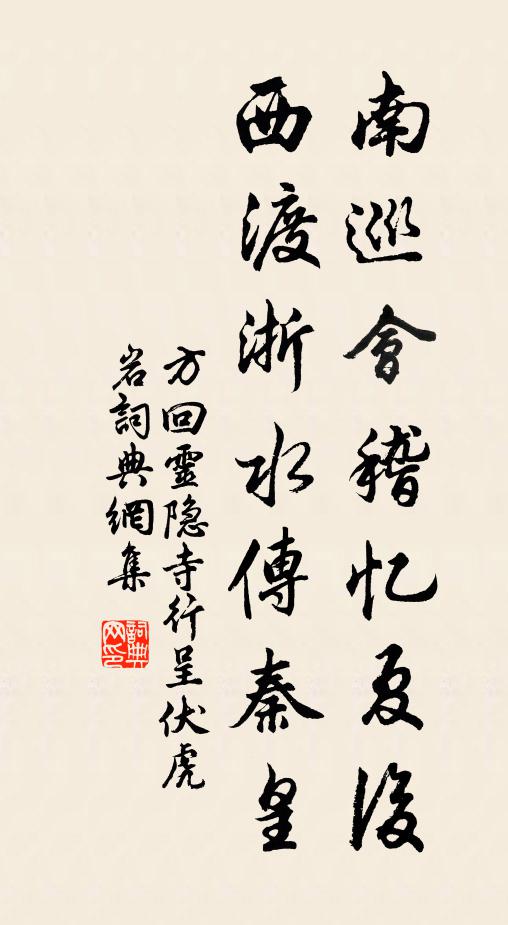 南巡會稽忆夏後
西渡浙水傳秦皇
方回靈隐寺行呈伏虎
岩詞典網集
詞典网印